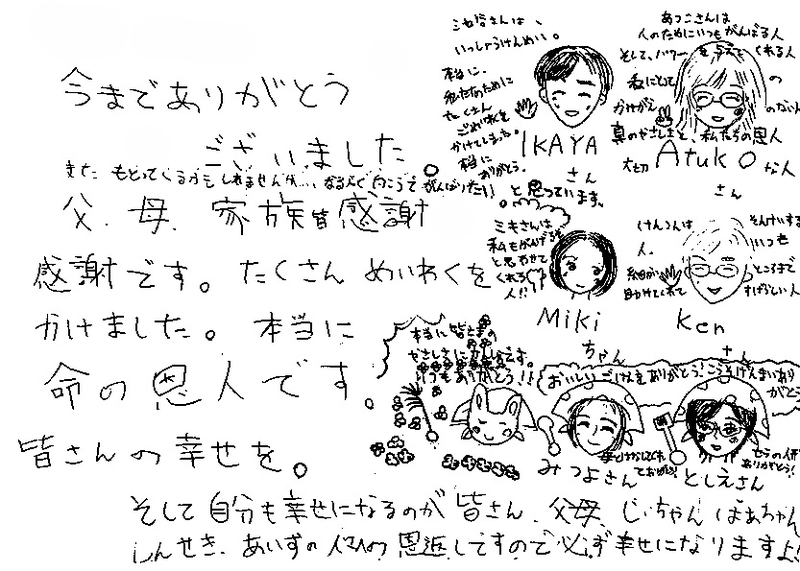 今までありがとう
ございました。
また もどってくるかもしれませんが… なるべく向こうで がんばりたい と思っています。
父、母、家族皆感謝
感謝です。たくさん めいわくを
かけました。本当に
命の恩人です。
皆さんの幸せを。
そして自分も幸せになるのが皆さん、父母、じいちゃん ばあちゃん
しんせき、あいずの 恩返しですので必ず幸せになりますよ!
いっしょうけんめい。
本当に、
私たちのために
たくさん
ごめいわくを
かけてしまった。
本当に
ありがとう。
IKAYA
さん
あつこさんは
人のためにいつもがんばる人
そして、パワーを与えてくれる人
私にとって
の
かけがえ
のない
真のやさしさと、私たちの恩人
大切 な人
Atuko
さん
ミキさんは
私もがんばろう
と思わせて
くれる
人!!
Miki
ちゃん
けんさんは
人。
そんけいする
いつも
ところまで
助けてくれて
すばらしい人
Ken
さん
本当に皆さまの
やさしさにかんしゃです。
いつもありがとう!!
おいしいごはんをありがとう!こうそげんまいありがとう
みつよさん
としえさん
ありがとう!